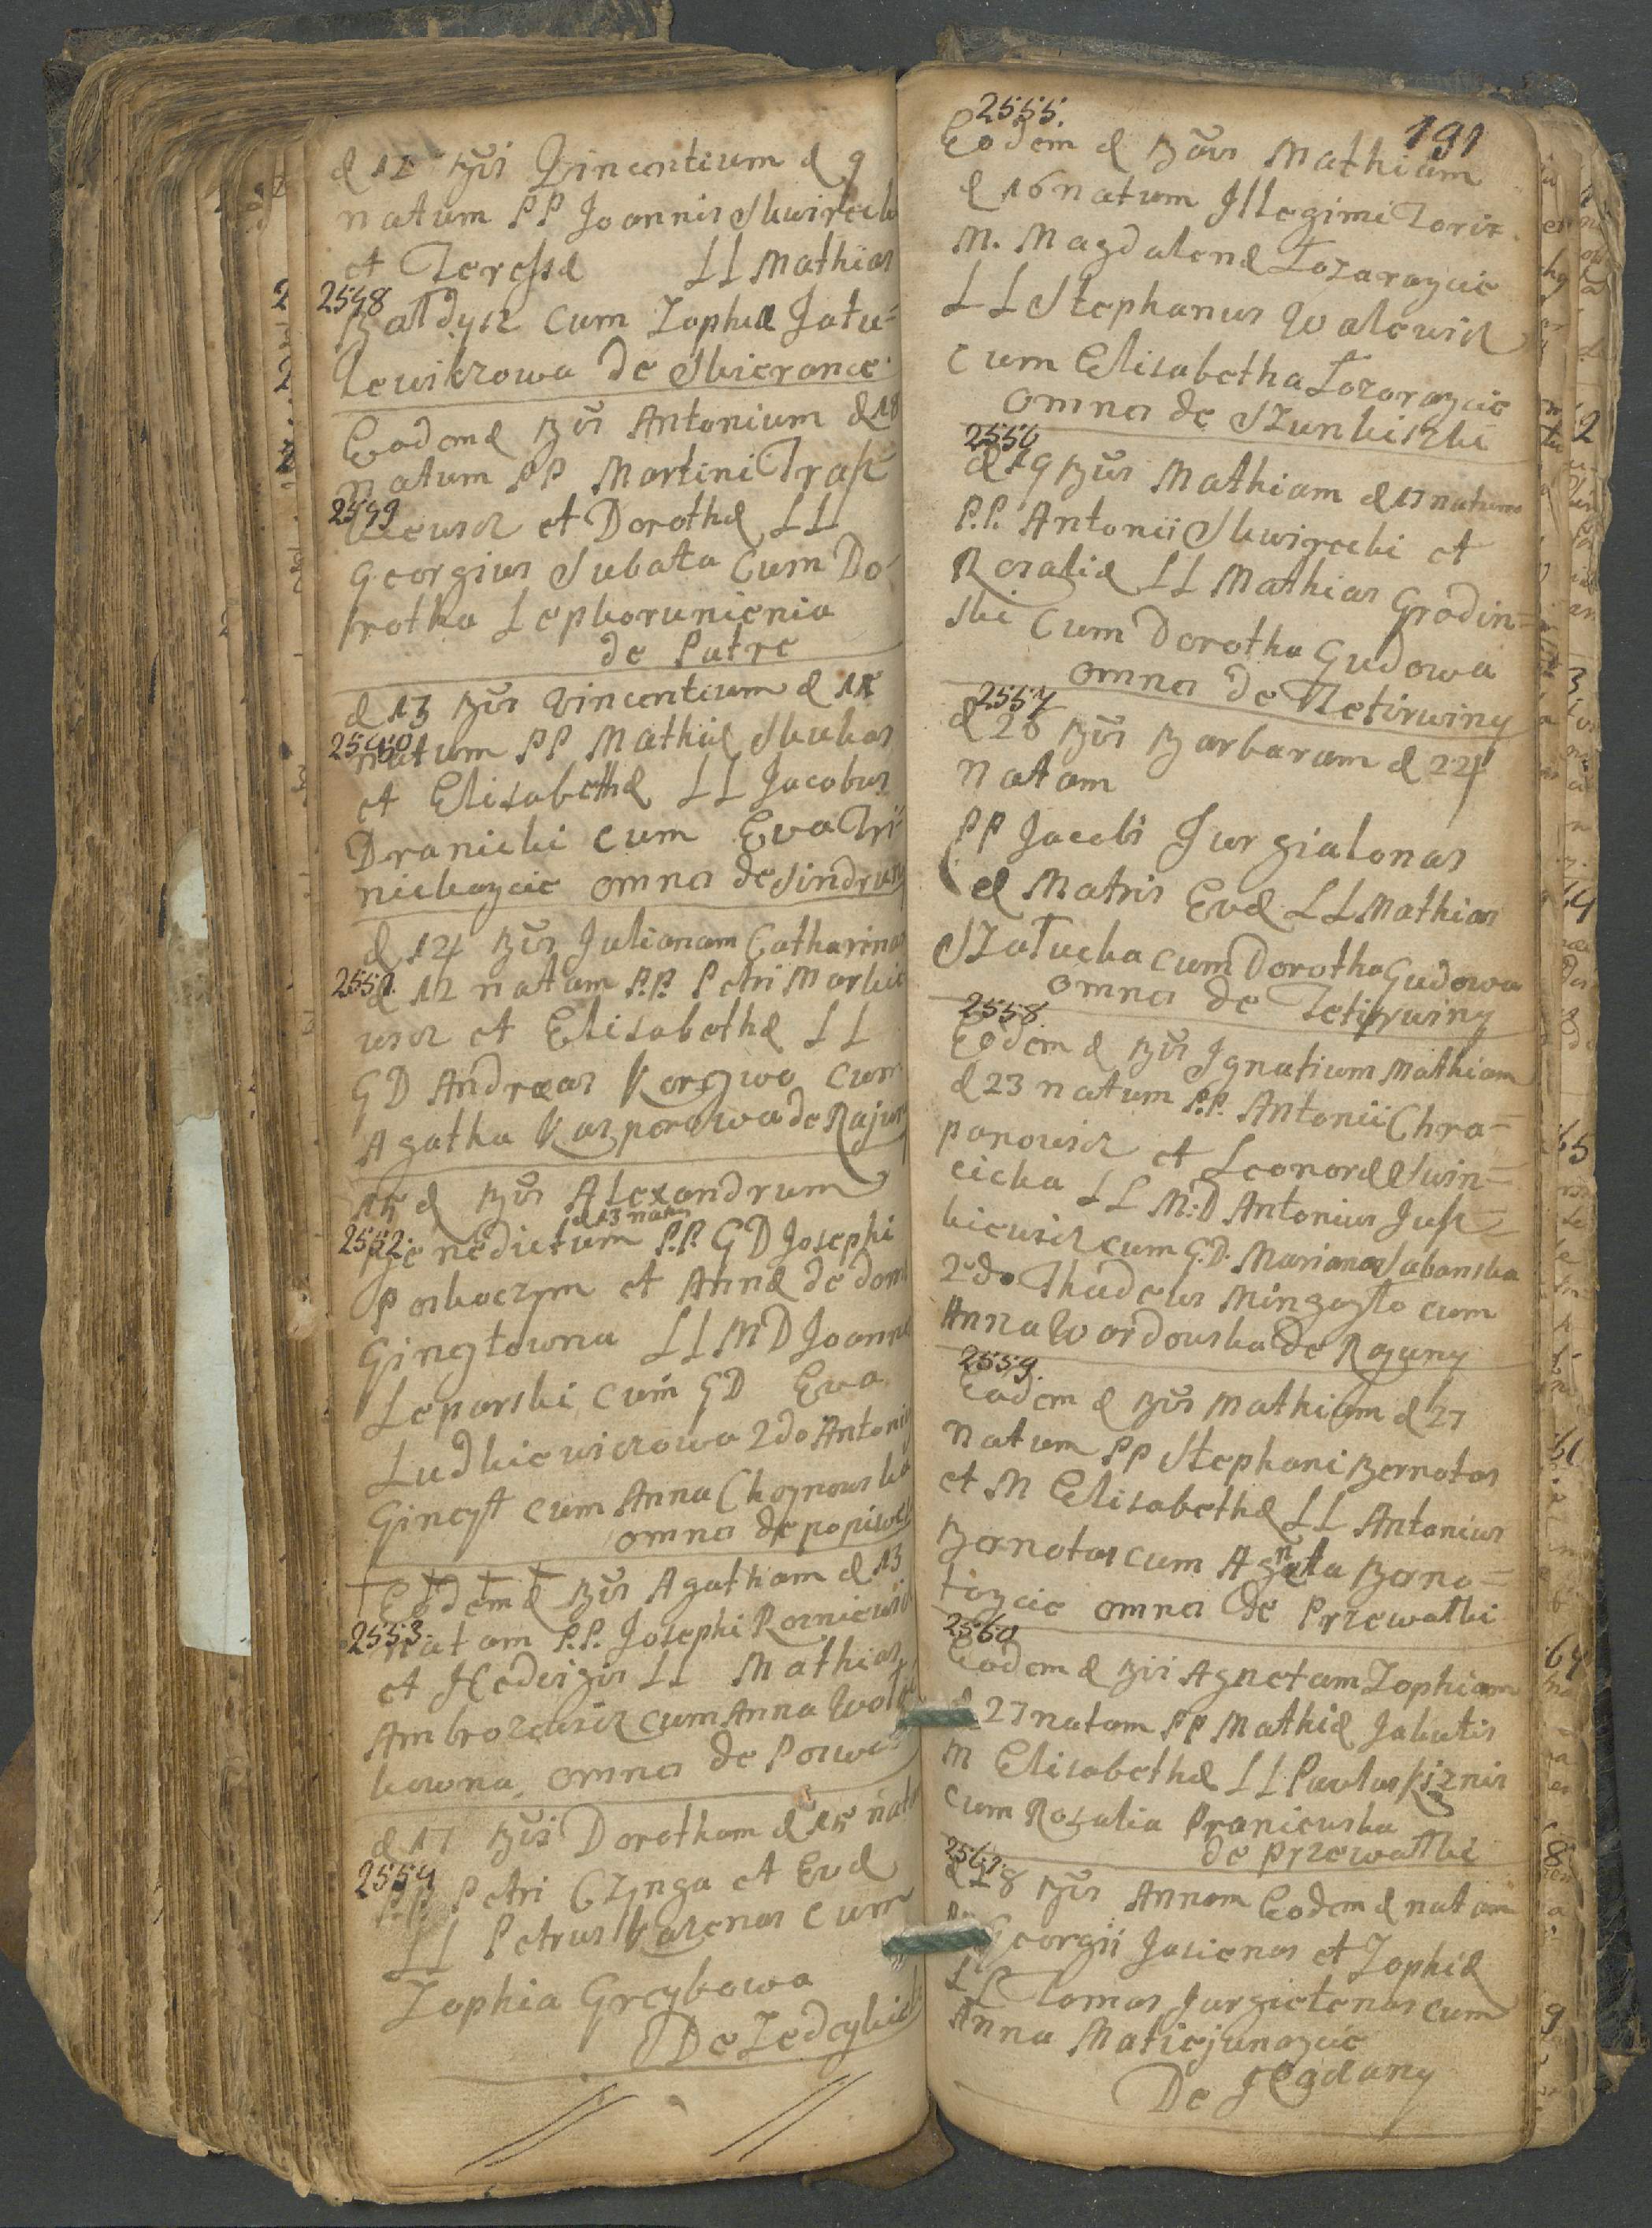 d 12 Bzūi Vincentium d 9
natum PP Joannis Skwirecki
et Teressæ LL Mathias
2548
Bałdysz cum Zophia Jatu=
lewiczowa de Skierance
Eodem d Bzūi Antonium d 18
natum PP Martini Trasz
2549
kiewicz et Dorothæ LL
Georgius Subata Cum Do
rotha Lepkorunienia
de Putre
d 13 Bzūi Vincentium d 11
2550
natum PP Mathiæ Skukas
et Elisabethæ LL Jacobus
Dranicki cum Eva Tri
nickaycie omnes de Sindruny
d 14 Bzūi Julianam Catharinam
2551
d 12 natam P.P. Petri Markie
wicz et Elisabethæ LL
GD Andreas Korzywo cum
Agatha Kasperowa de Rajun
15 d Bzūi Alexandrum
d 13 natum
2552
Benedictum P.P. GD Josephi
Poskoczym et Annæ de dom
Gineytowna LL MD Joannes
Leparski cum GD Eva
Ludkiewiczowa 2do Antoni
Gineyt cum Anna Choynowska
omnes de popiwe
Eodem d Bzūi Agatham d 13
2553
natam P.P. Josephi Rosniewicz
et Hedvigis LL Mathias
Ambrozewicz cum Anna Wolt
kowna omnes de Poswe
d 17 Bzūi Dorotham d 15 nata
2554
P.P. Petri Czynga et Evæ
LL Petrus Kasenas cum
Zophia Greybowa
De Zedeykie
191
2555.
Eodem d Bzūi Mathiam
d 16 natum Illegimi Toris
M. Magdalenæ Łozaraycie
LL Stephanus Walewicz
cum Elisabetha Łozoraycie
omnes de Szunkiszki
2556
d 19 Bzūi Mathiam d 17 natum
P.P. Antonii Skwirecki et
Rosaliæ LL Mathias Grodin=
ski Cum Dorotha Gudowa
omnes de Tetirwiny
2557
d 26 Bzūi Barbaram d 24
natam
PP Jacobi Jurgialonas
& Matris Evæ LL Mathias
Szatucka cum Dorotha Gudowa
omnes de Tetirwiny
2558.
Eodem d Bzūi Ignatium Mathiam
d 23 natum P.P. Antonii Chra=
panowicz et Leonoræ Swin=
cicka LL M:D Antonius Jusz=
kiewicz cum G.D. Mariana Sabanska
2do Thadeus Mingayło cum
Anna Wordowska de Rajuny
2559.
Eodem d Bzūi Mathiam d 27
natum PP Stephani Bernotas
et M Elisabethæ LL Antonius
Bernotas cum Agneta Berno=
taycie omnes de Przewałki
2560
Eodem d Bzūi Agnetam Zophiam
d 27 natam PP Mathiæ Jakutis
M Elisabethæ LL Paulus Kiznis
cum Rosalia Pranicuska
de Przewałki
2561.
d 28 Bzūi Annam Eodem d natam
Georgii Jasienas et Zophiæ
LL Tomas Jurgietenas cum
Anna Maticjunaycie
De Jegdany